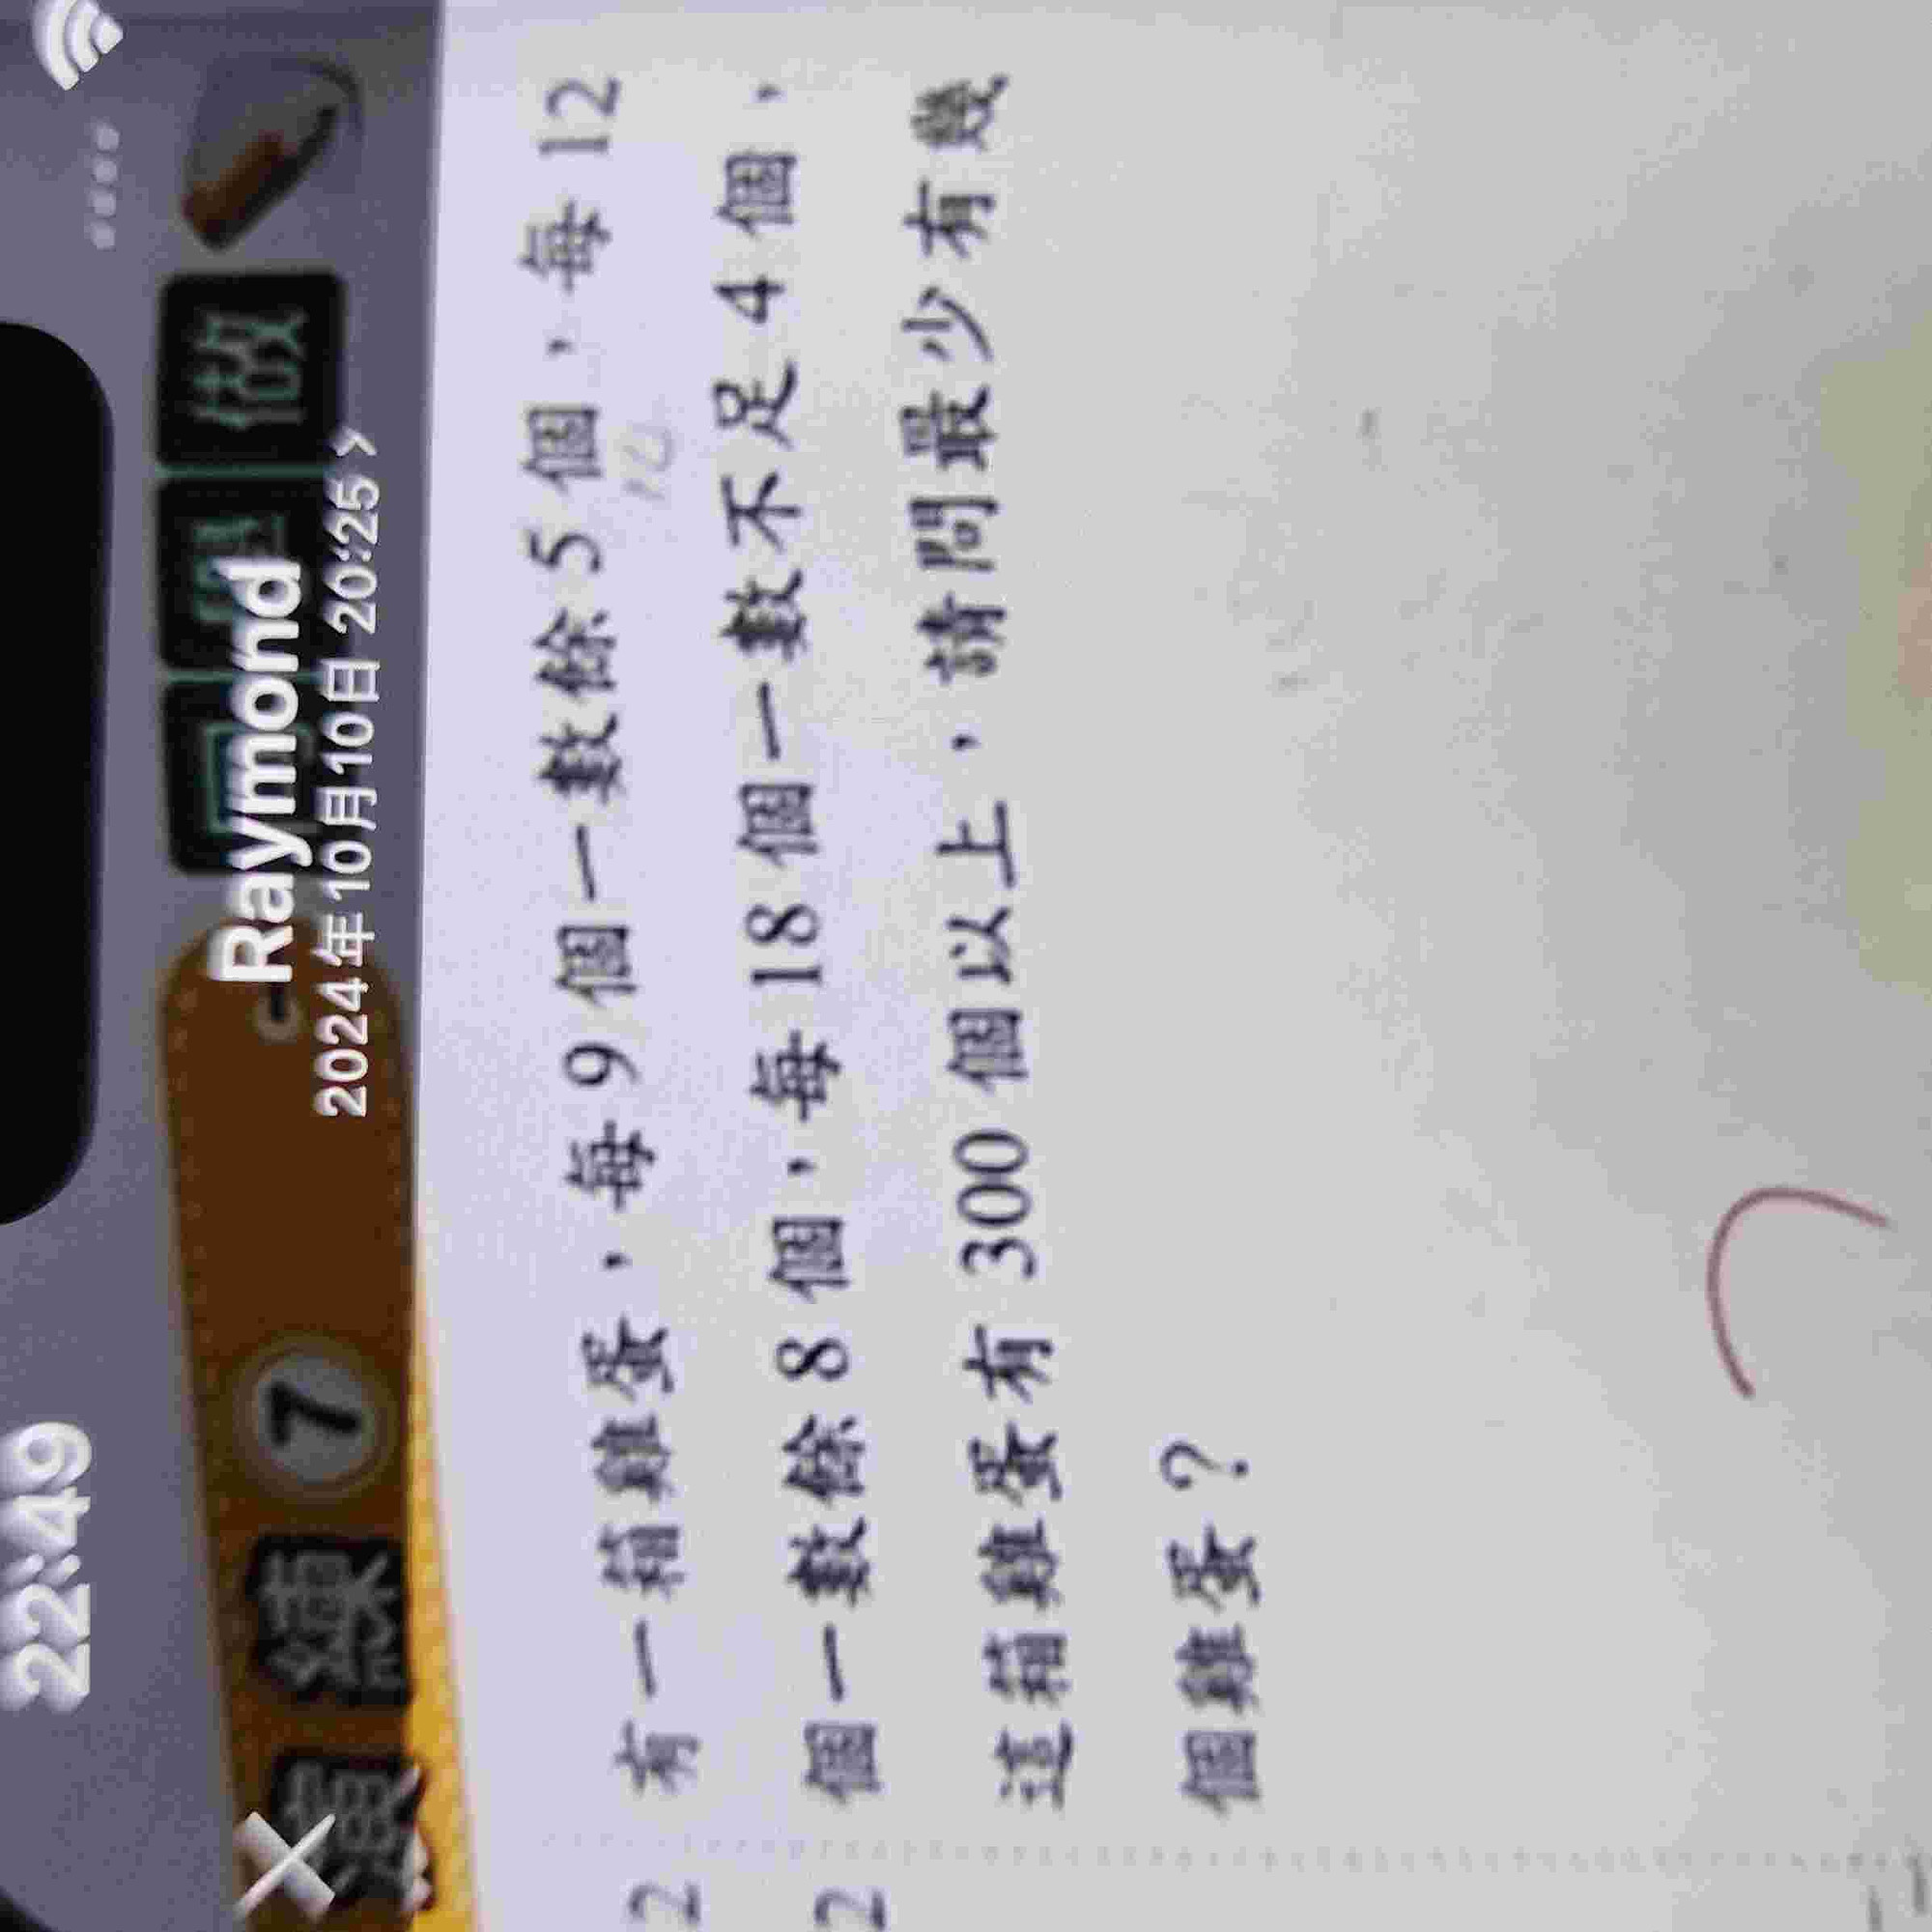 22:49
Raymond
2024年10月10日 20:25 >
練 7
做
有一箱雞蛋，每9個一數餘5個，每12
個一數餘8個，每18個一數不足4個，
這箱雞蛋有300個以上，請問最少有幾
個雞蛋？
2
2